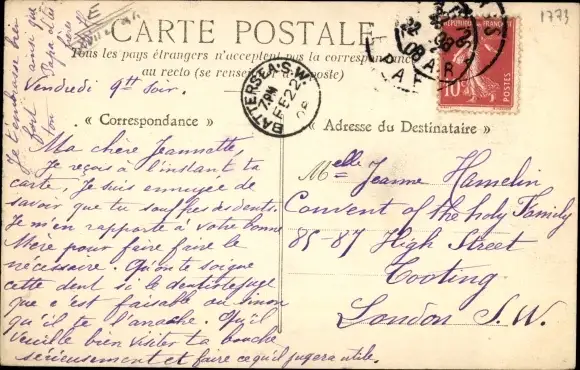 1773
CARTE POSTALE
Tous les pays étrangers n'acceptent pas la correspondance
au recto (se renseigner à la poste)
RÉPUBLIQUE FRANÇAISE
10
BATTERSEA. S.W.
FE 22
08
PARIS
Vendredi 9h soir.
« Correspondance »
Ma chère Jeannette,
Je reçois à l'instant ta
carte, Je suis ennuyée de
savoir que tu souffres des dents.
Je m'en rapporte à votre bonne
Mère pour faire faire le
nécessaire. Qu'on te soigne
cette dent si le dentiste juge
que c'est faisable ou sinon
qu'il te l'arrache. Qu'il
veuille bien visiter ta bouche
sérieusement et faire ce qu'il jugera utile.
Je t'embrasse bien
fort ainsi que
Papa Lili
Ton
« Adresse du Destinataire »
Melle Jeanne Hamelin
Convent of the holy Family
85-87 High Street
Tooting
London S. W.